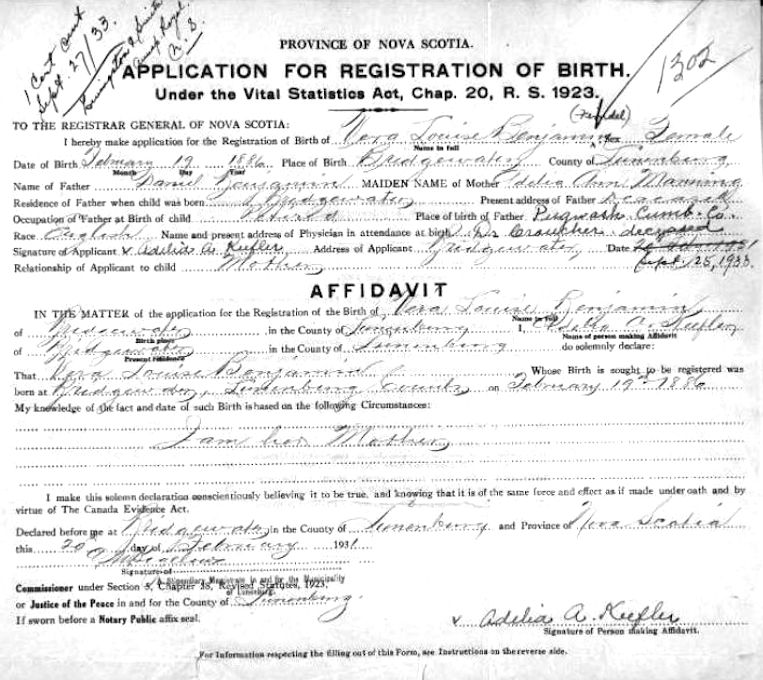 1 Cert sent
Sept. 27/33.
N. S.
1302
PROVINCE OF NOVA SCOTIA.
APPLICATION FOR REGISTRATION OF BIRTH.
Under the Vital Statistics Act, Chap. 20, R. S. 1923.
TO THE REGISTRAR GENERAL OF NOVA SCOTIA:
I hereby make application for the Registration of Birth of Vera Louise Benjamin Sex Female
Name in full
Date of Birth February 19 1886 Place of Birth Bridgewater County of Lunenburg
Month Day Year
Name of Father Daniel Benjamin MAIDEN NAME of Mother Adelia Ann Manning
Residence of Father when child was born Bridgewater Present address of Father Deceased
Occupation of Father at Birth of child Place of birth of Father Pugwash Cumb. Co.
Race English Name and present address of Physician in attendance at birth Dr Croucher deceased
Signature of Applicant x Adelia A. Keefler Address of Applicant Bridgewater Date
Sept. 25, 1933.
Relationship of Applicant to child Mother
AFFIDAVIT
IN THE MATTER of the application for the Registration of the Birth of Vera Louise Benjamin
Name in full
of Bridgewater in the County of Lunenburg I, Adelia A. Keefler
Birth place Name of person making Affidavit
of Bridgewater in the County of Lunenburg do solemnly declare:
Present residence
That Vera Louise Benjamin Whose Birth is sought to be registered was
born at Bridgewater, Lunenburg County on February 19th 1886
My knowledge of the fact and date of such Birth is based on the following Circumstances:
I am her Mother
I make this solemn declaration conscientiously believing it to be true, and knowing that it is of the same force and effect as if made under oath and by
virtue of The Canada Evidence Act.
Declared before me at Bridgewater in the County of Lunenburg and Province of Nova Scotia
this 20 day of February 1931
Signature of
A Stipendiary Magistrate in and for the Municipality
of Lunenburg.
Commissioner under Section 5, Chapter 38, Revised Statutes, 1923,
or Justice of the Peace in and for the County of Lunenburg.
If sworn before a Notary Public affix seal.
x Adelia A. Keefler
Signature of Person making Affidavit.
For Information respecting the filling out of this Form, see Instructions on the reverse side.